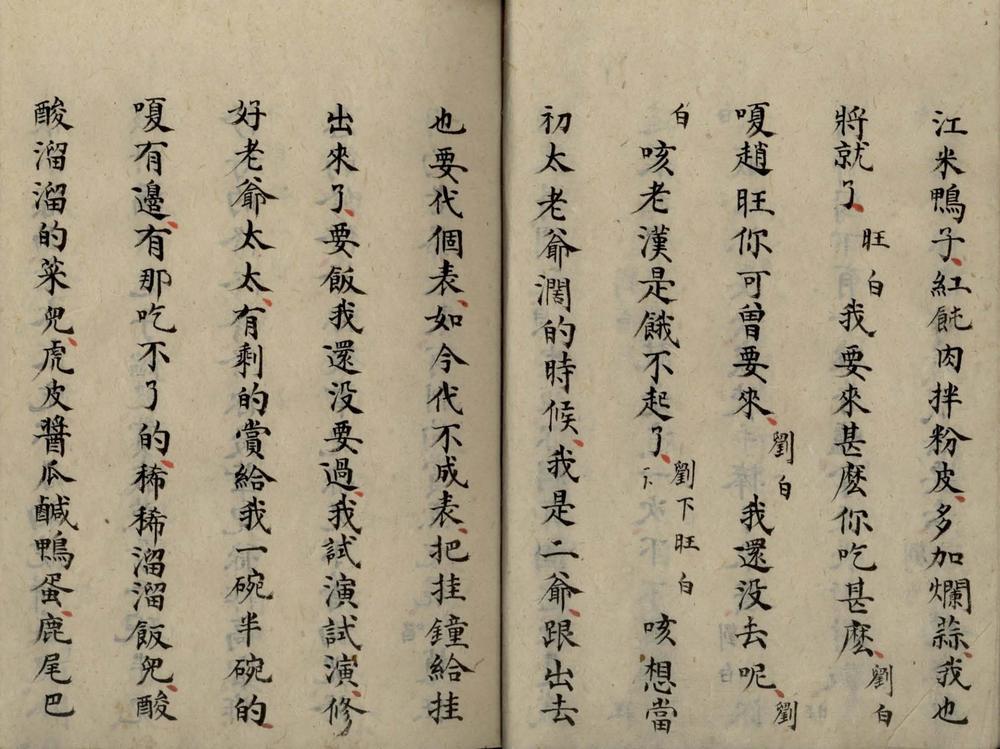 江米鴨子紅飩肉拌粉皮多加爛蒜我也
將就了旺白我要來甚麼你吃甚麼劉白
嗄趙旺你可曾要來劉白我還没去呢劉
白咳老漢是餓不起了下劉下旺白咳想當
初太老爺濶的時候我是二爺跟出去
也要代個表如今代不成表把挂鐘給挂
出來了要飯我還没要過我試演試演修
好老爺太太有剩的賞給我一碗半碗的
嗄有邊有那吃不了的稀稀溜溜飯兒酸
酸溜溜的菜兒虎皮醬瓜鹹鴨蛋鹿尾巴